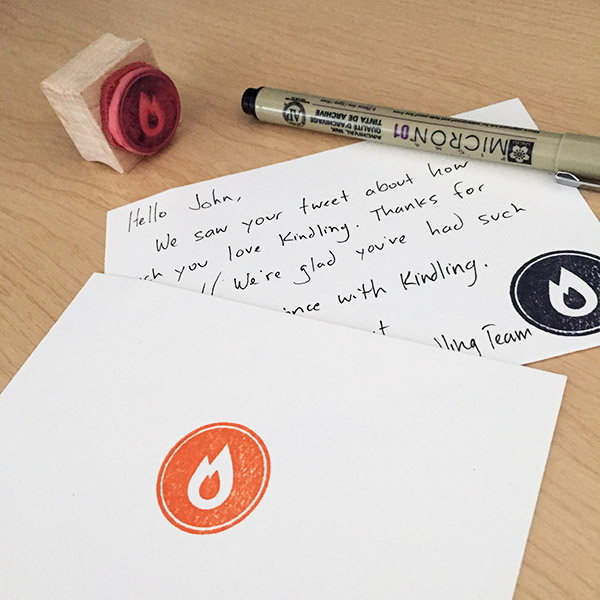 MICRON 01
ARCHIVAL INK
QUALITE D'ARCHIVAGE
TINTA DE ARCHIVE
Hello John,
We saw your tweet about how
you love Kindling. Thanks for
We're glad you've had such
with Kindling.
Team